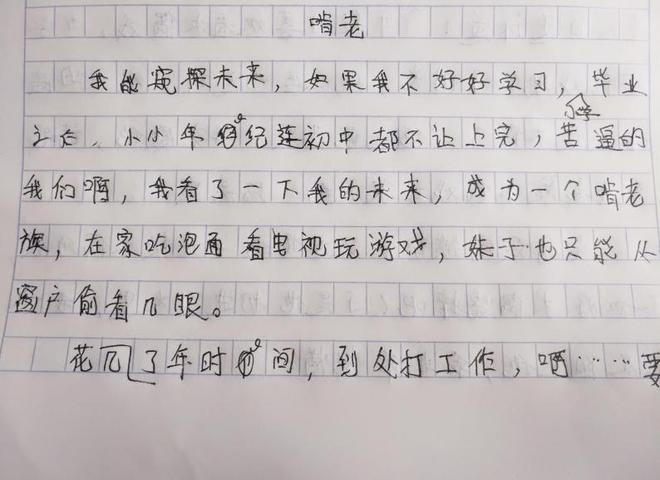 啃老
我能窥探未来，如果我不好好学习，小学毕业
之后，小小年纪连初中都不让上完，苦逼的
我们啊，我看了一下我的未来，成为一个啃老
族，在家吃泡面看电视玩游戏，妹子也只能从
窗户偷看几眼。
花几了年时间，到处打工作，啊……要